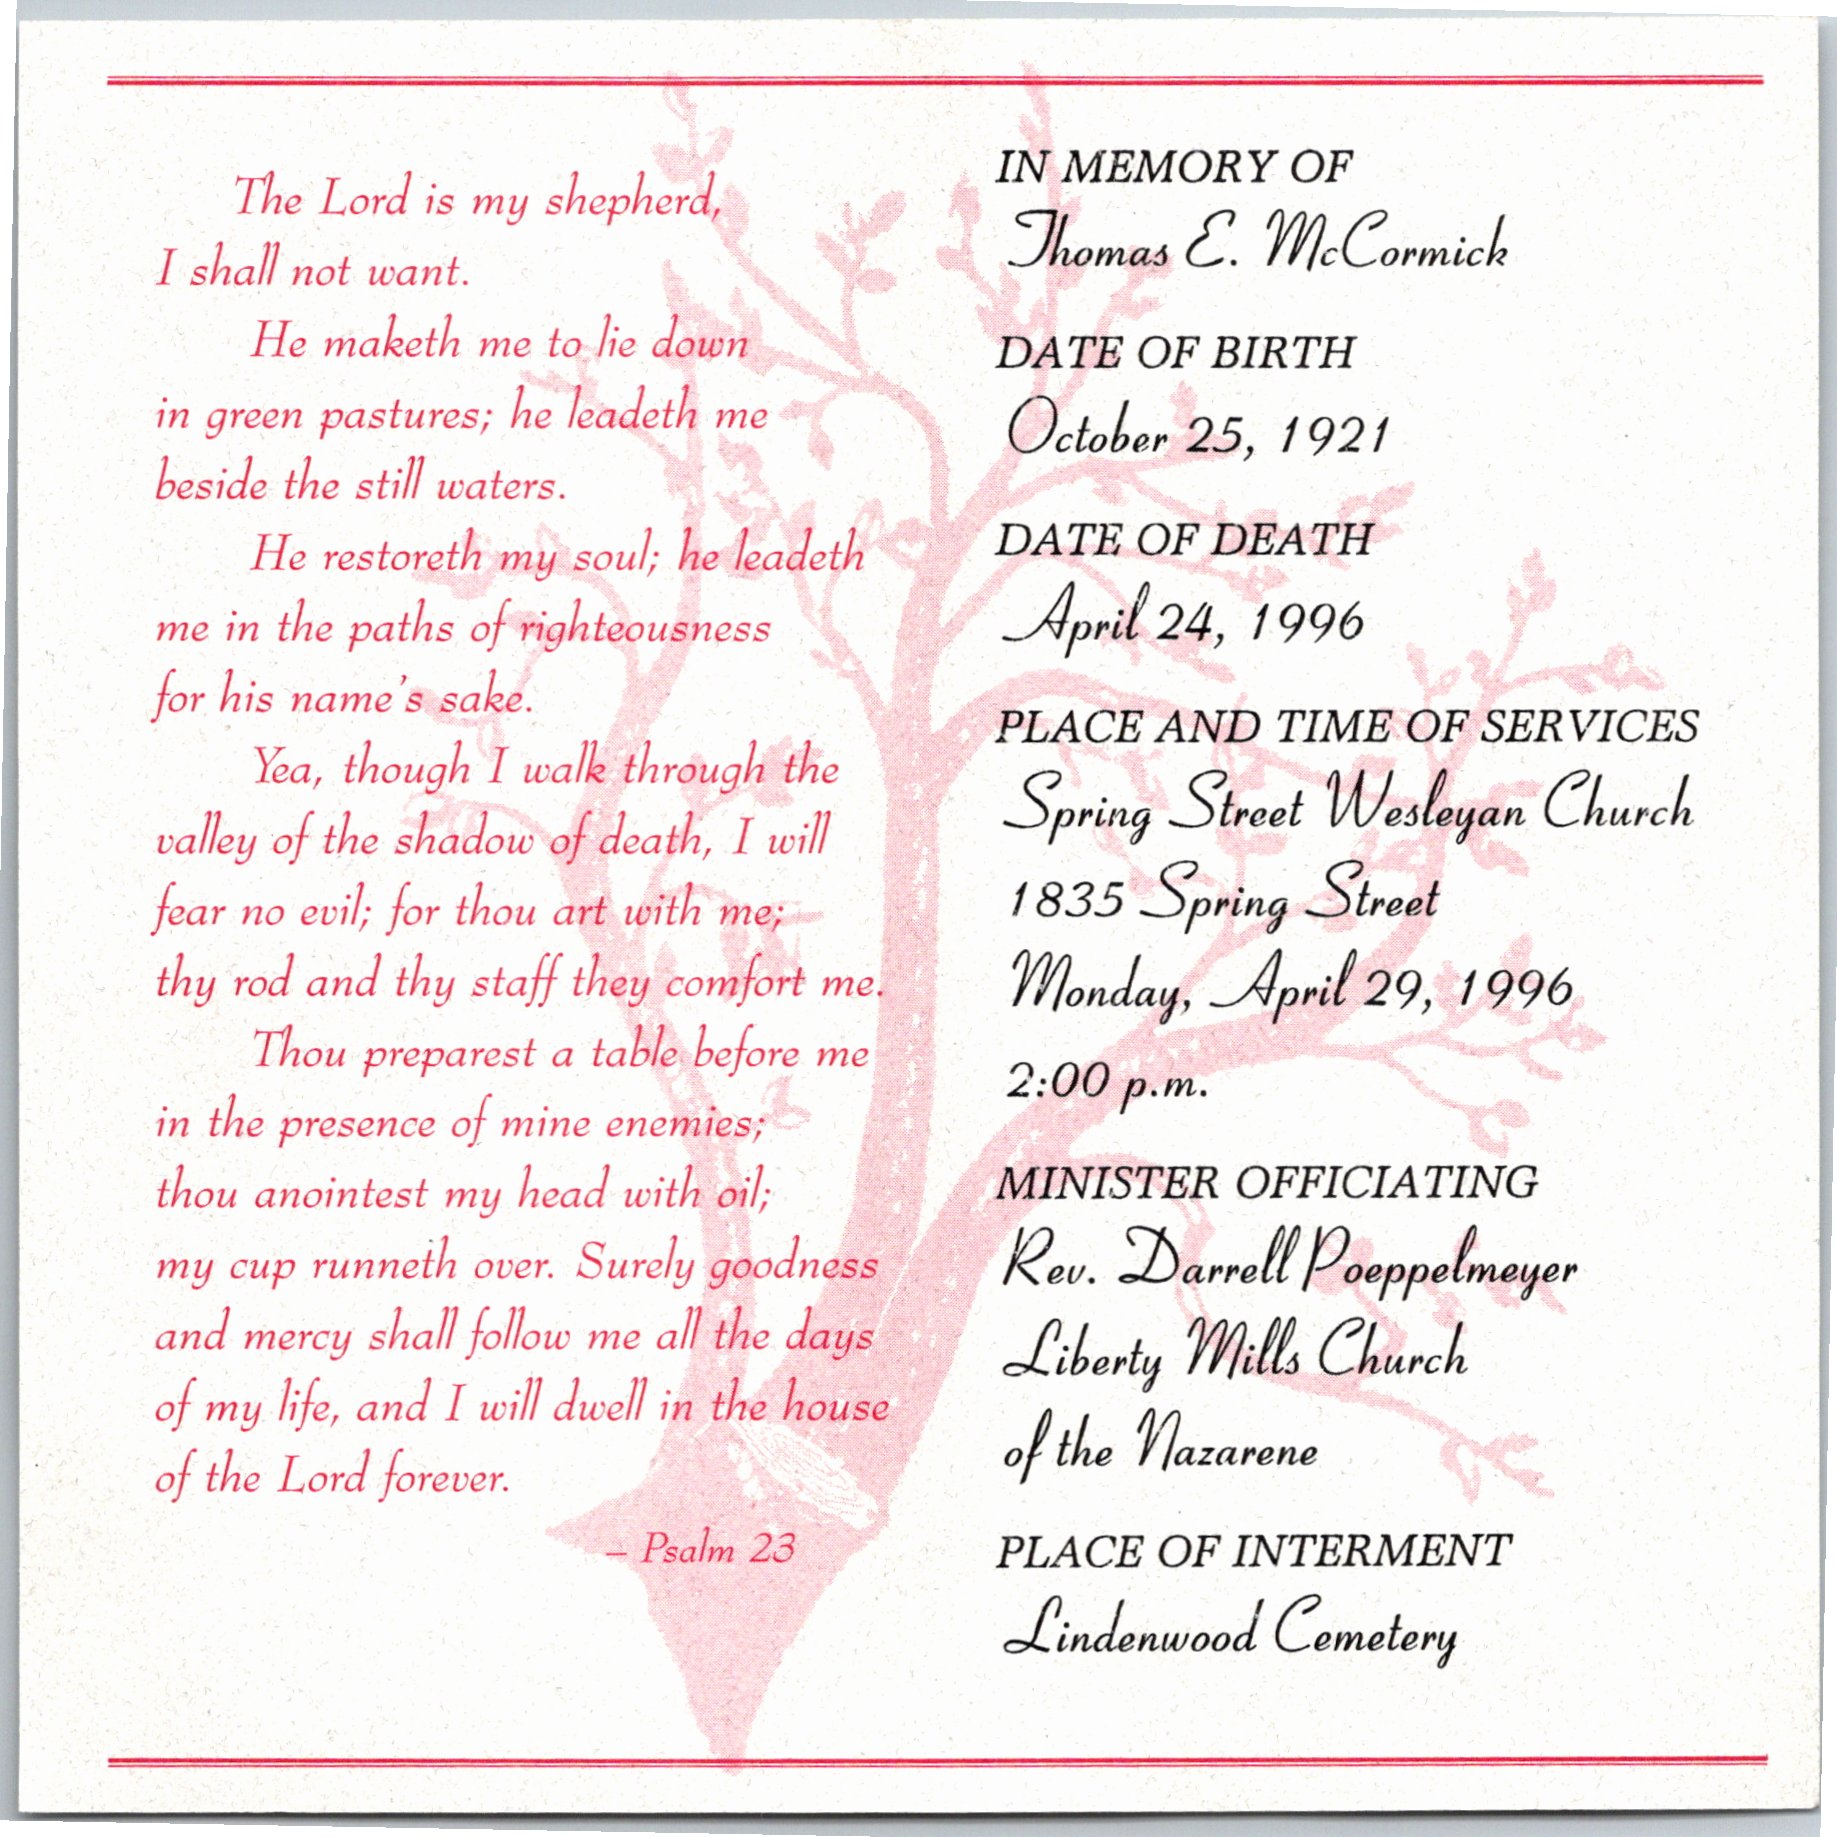 The Lord is my shepherd,
I shall not want.
He maketh me to lie down
in green pastures; he leadeth me
beside the still waters.
He restoreth my soul; he leadeth
me in the paths of righteousness
for his name's sake.
Yea, though I walk through the
valley of the shadow of death, I will
fear no evil; for thou art with me;
thy rod and thy staff they comfort me.
Thou preparest a table before me
in the presence of mine enemies;
thou anointest my head with oil;
my cup runneth over. Surely goodness
and mercy shall follow me all the days
of my life, and I will dwell in the house
of the Lord forever.
– Psalm 23
IN MEMORY OF
Thomas E. McCormick
DATE OF BIRTH
October 25, 1921
DATE OF DEATH
April 24, 1996
PLACE AND TIME OF SERVICES
Spring Street Wesleyan Church
1835 Spring Street
Monday, April 29, 1996
2:00 p.m.
MINISTER OFFICIATING
Rev. Darrell Poeppelmeyer
Liberty Mills Church
of the Nazarene
PLACE OF INTERMENT
Lindenwood Cemetery